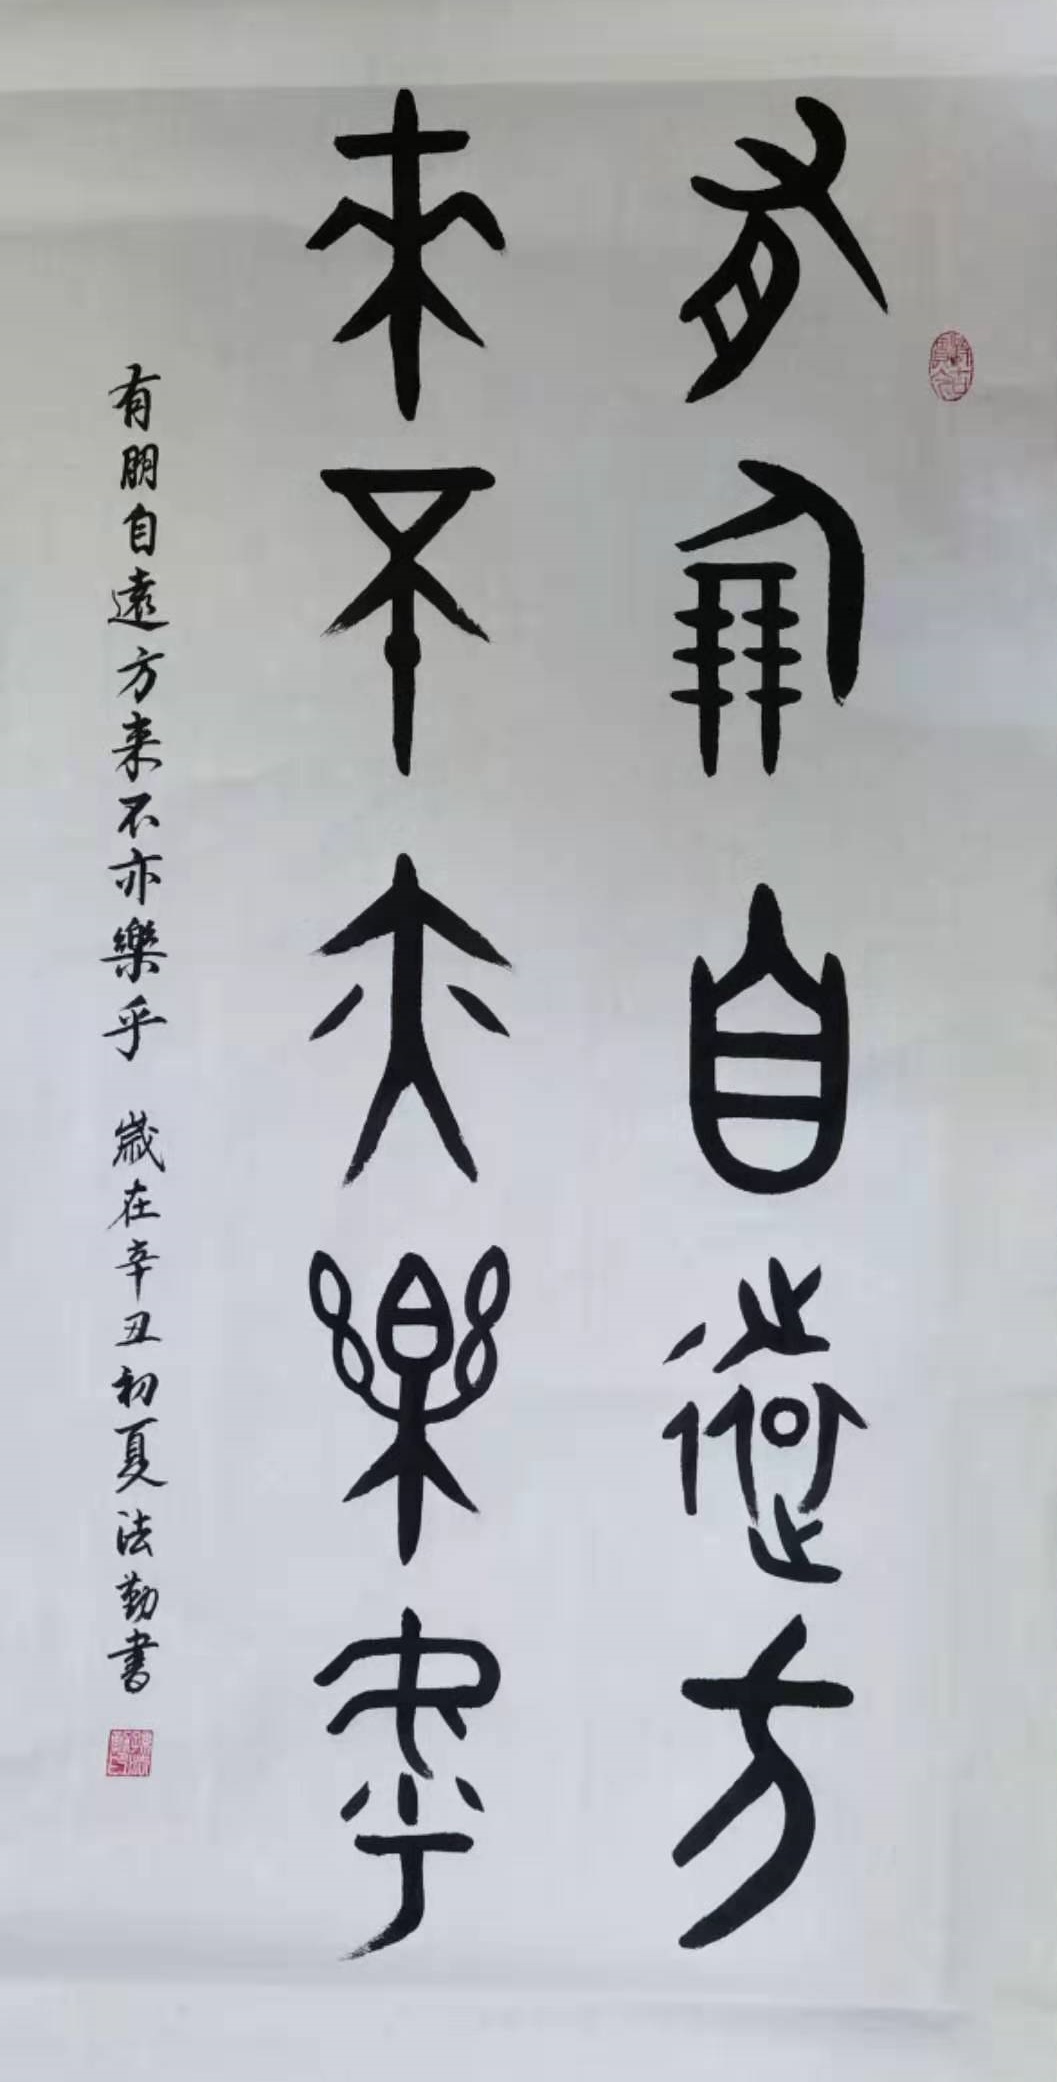 有朋自遠方
来不亦樂乎
有朋自遠方来不亦樂乎 歲在辛丑初夏法勤書